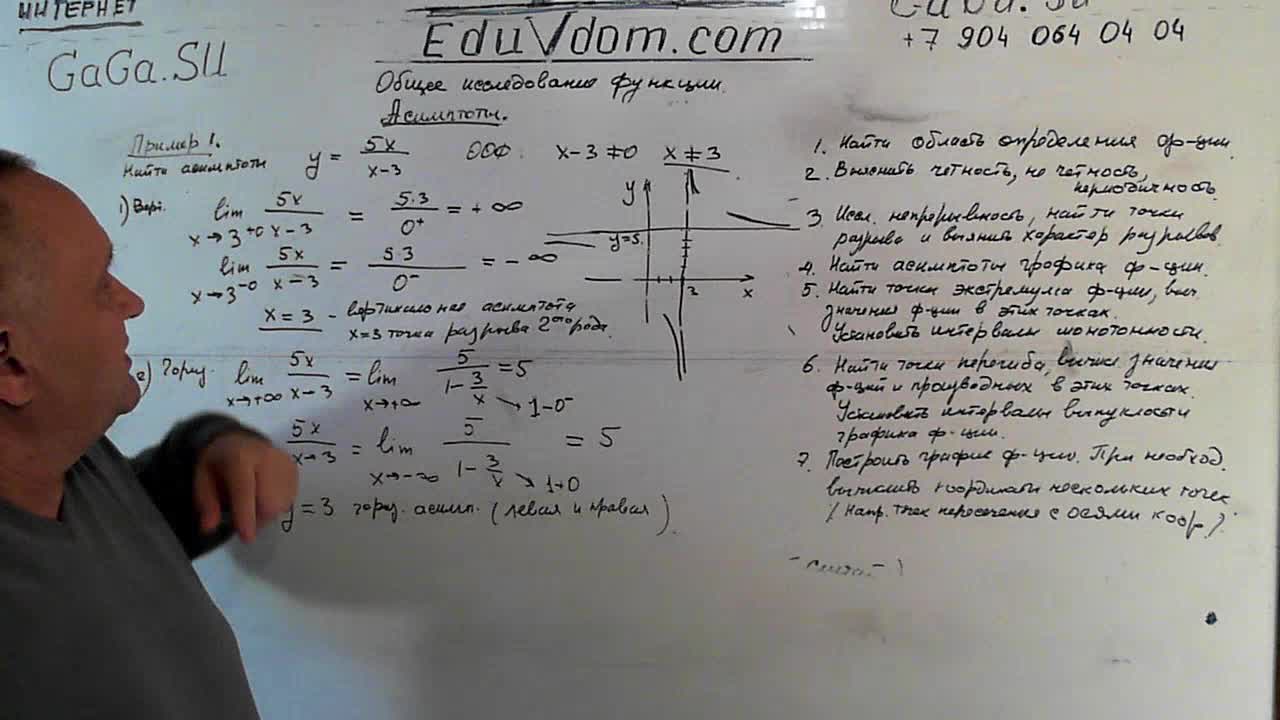 ИНТЕРНЕТ
GaGa.SU
EduVdom.com
GaGa.SU
+7 904 064 04 04
Общее исследование функции.
Асимптоты.
Пример 1.
Найти асимптоты y = 5x/(x-3) ООФ. x-3 ≠ 0 x ≠ 3
1) Верт. lim x→3+0 5x/(x-3) = 5·3/0⁺ = +∞
lim x→3-0 5x/(x-3) = 5·3/0⁻ = -∞
x = 3 - вертикальная асимптота
x=3 точка разрыва 2ого рода.
y
y=5
3
x
2) Гориз. lim x→+∞ 5x/(x-3) = lim x→+∞ 5/(1-3/x) = 5
→ 1-0
5x/(x-3) = lim x→-∞ 5/(1-3/x) = 5
→ 1+0
y = 3 гориз. асимп. (левая и правая).
1. Найти область определения ф-ции.
2. Выяснить четность, не четность,
периодичность.
3. Иссл. непрерывность, найти точки
разрыва и выяснить характер разрывов.
4. Найти асимптоты графика ф-ции.
5. Найти точки экстремума ф-ции, выч.
значения ф-ции в этих точках.
Установить интервалы монотонности.
6. Найти точки перегиба, вычисл. значения
ф-ций и производных в этих точках.
Установить интервалы выпуклости
графика ф-ции.
7. Построить график ф-ции. При необход.
вычислить координаты нескольких точек
(Напр. точек пересечения с осями коор.)